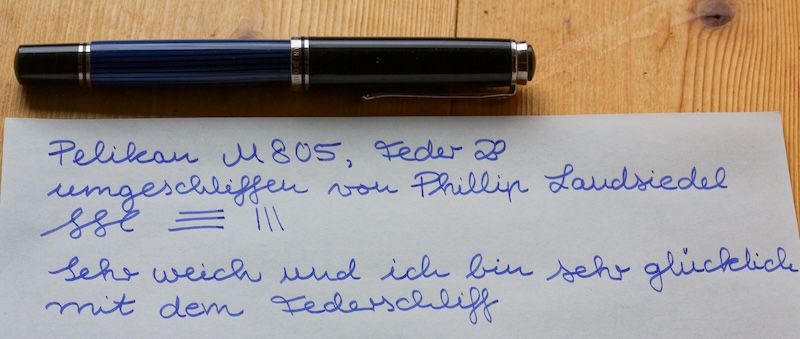 Pelikan M805, Feder
umgeschliffen von Phillip Landsiedel
Sehr weich und ich bin sehr glücklich
mit dem Federschliff